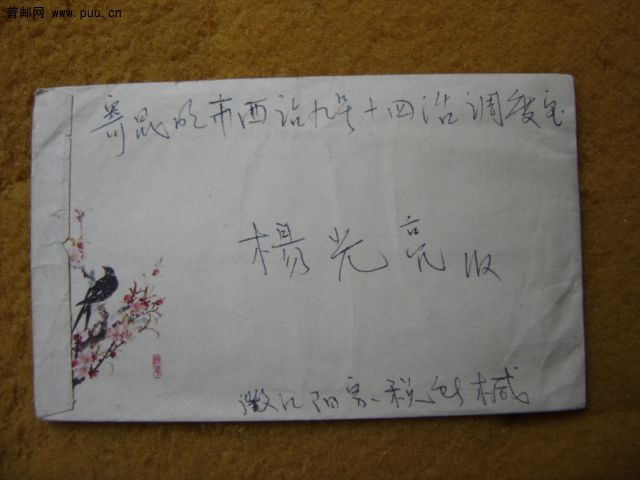 普邮网 www.puu.cn
寄昆明市西站九号十四冶调度室
楊光亮收
澂江阳宗税所槭